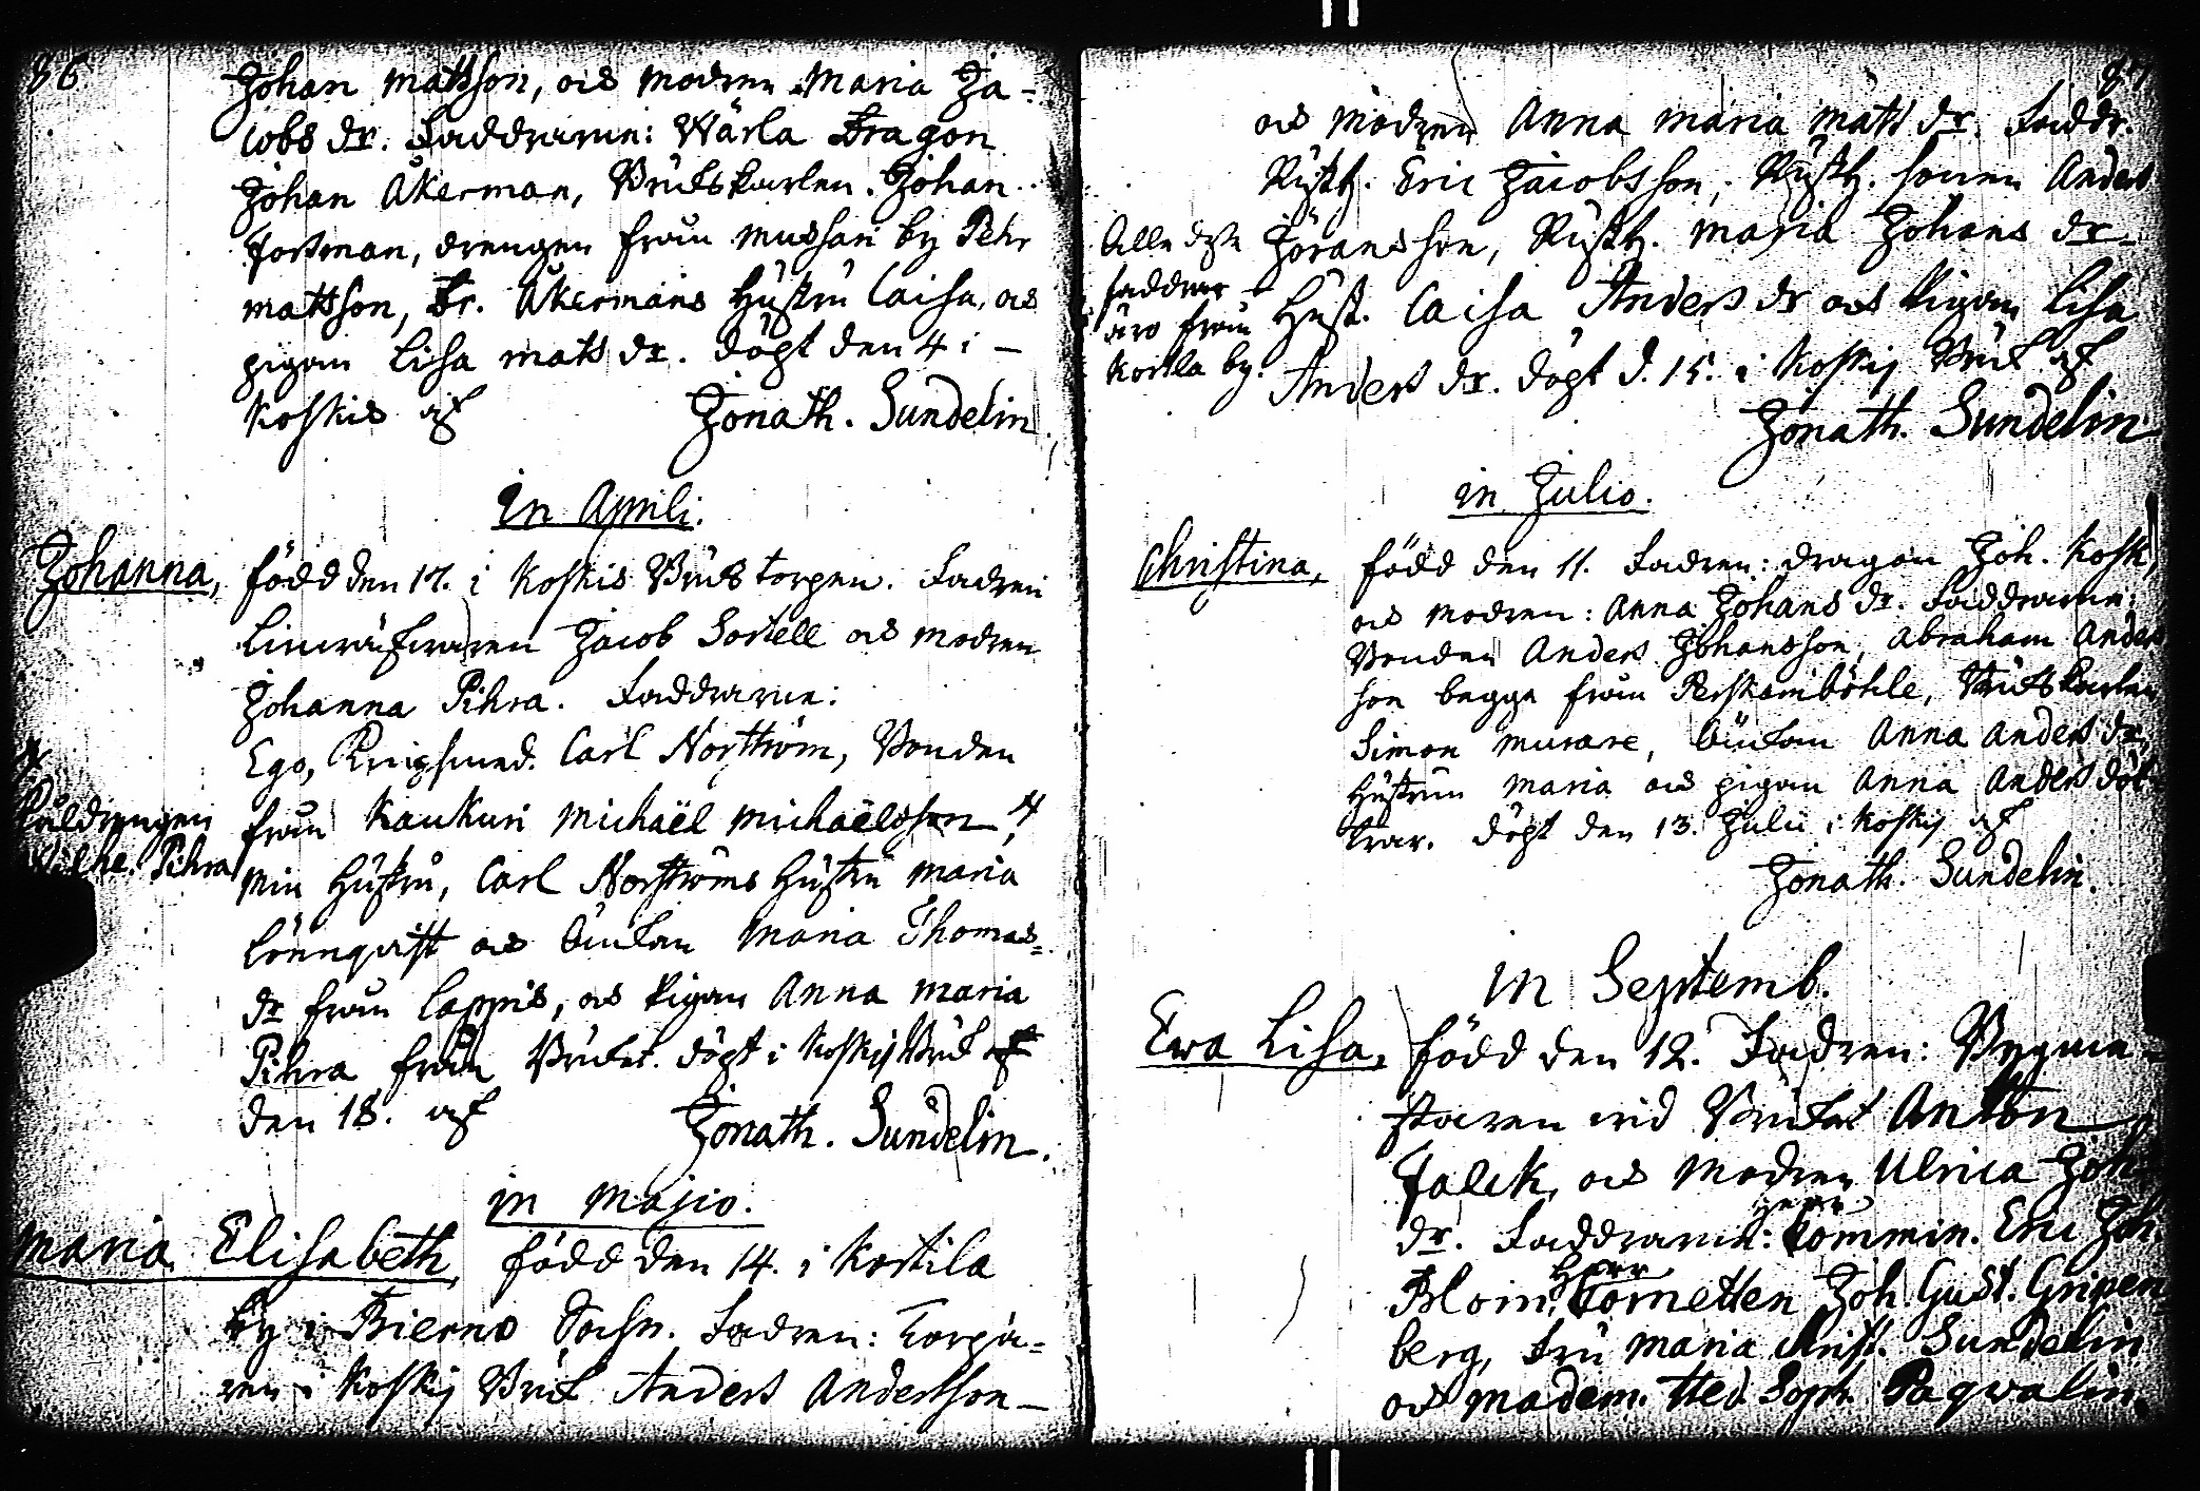 86
Johan Mattsson, ock modren Maria Ja-
cobs dr. Faddrarne: Wärla Dragon
Johan Åkerman, Brukskarlen Johan
Forsman, drengen från Mussari by Pehr
Mattsson, Dr. Åkermans Hustru Caisa, ock
pigan Lisa Mats dr. döpt den 4 i
Koskis af Jonath. Sundelin
In Aprili.
Johanna, född den 17. i Koskis Bruks torpen. Fadren
Linväfvaren Jacob Sortell ock modren
Johanna Pihra. Faddrarne:
Ego, Knipsmed. Carl Norström, Bonden
från Kaukuri Michaël Michaëlsson #,
#
drengen
Pihra
Min Hustru, Carl Norströms Hustru Maria
Lönnqvist ock Enkan Maria Thomas-
dr från Lappis, ock Pigan Anna Maria
Pihra från Bruket. döpt i Koskis Bruk af
den 18. af Jonath. Sundelin.
in Majio.
Maria Elisabeth, född den 14. i Kostila
by i Bierno Sochn. Fadren: Torpa-
ren i Koskis Bruk Anders Andersson
87
ock modren Anna Maria Mats dr. Faddr.
Rusth. Eric Jacobsson, Rusth. sonen Anders
Jöransson, Rusth. Maria Johans dr.
Alle desse
faddrar
äro från
Kostla by.
Hust. Caisa Anders dr ock Pigan Lisa
Anders dr. döpt d. 15. i Koskis Bruk af
Jonath. Sundelin
in Julio.
Christina, född den 11. Fadren: dragon Joh. Kosk,
ock modren: Anna Johans dr. Faddrarne:
Bonden Anders Johansson, Abraham Anders
son begge från Perskamböhle, Brukskarlen
Simon Murare, Enkan Anna Anders dr,
Hustrun Maria ock pigan Anna Anders döt-
trar. döpt den 13. Julii i Koskis af
Jonath. Sundelin.
in Septemb.
Ewa Lisa, född den 12. Fadren: Bygmä-
staren vid Bruket Anton
Falck, ock Modren Ulrica Joh.
dr. Faddrarne: Herr Commin. Eric Joh.
Blom, Herr Cornetten Joh. Gust. Gripen-
berg, Fru Maria Christ. Sundelin
ock Madem. Hed. Soph. Paqvalin.